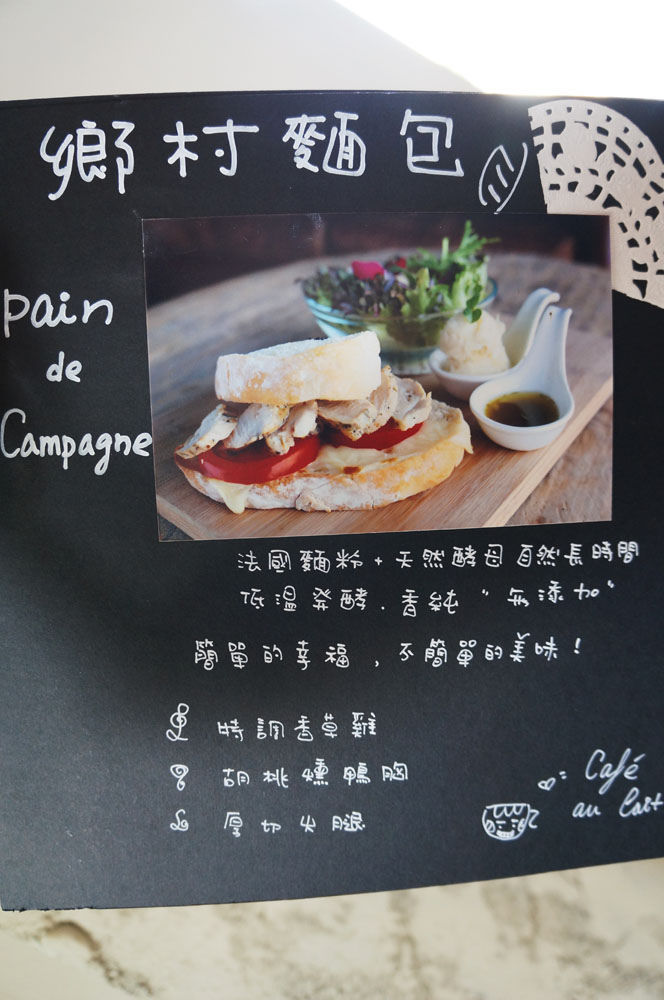 鄉村麵包
pain
de
Campagne
法國麵粉+天然酵母自然長時間
低溫発酵.香純"無添加"
簡單的幸福,不簡單的美味!
特調香草雞
胡桃燻鴨胸
厚切火腿
Café
au lait